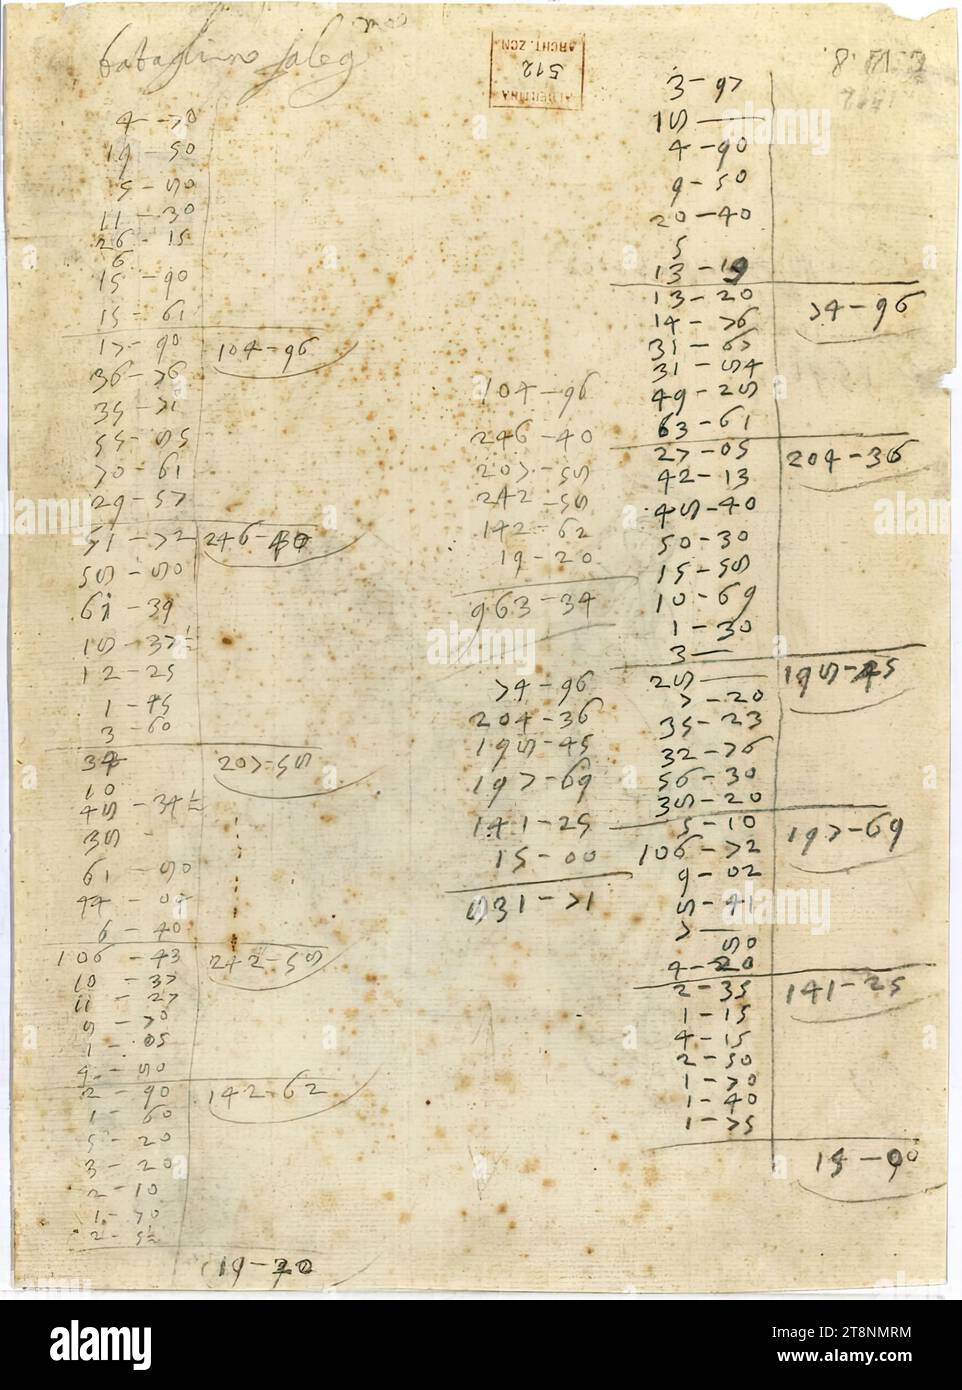 4 - 70
19 - 50
5 - 50
11 - 30
26 - 15
6
15 - 90
15 - 61
17 - 90
104 - 96
36 - 76
35 - 71
55 - 55
70 - 61
29 - 57
51 - 72
246 - 40
55 - 50
61 - 39
15 - 37½
12 - 25
1 - 45
3 - 60
34
207 - 55
10
45 - 34½
35 -
61 - 50
44 - 00
6 - 40
106 - 43
242 - 55
10 - 37
11 - 27
5 - 70
1 - 05
4 - 50
2 - 90
142 - 62
1 - 60
5 - 20
3 - 20
2 - 10
1 - 70
2 - 5½
19 - 20
104 - 96
246 - 40
207 - 55
242 - 55
142 - 62
19 - 20
963 - 34
74 - 96
204 - 36
195 - 45
197 - 69
141 - 25
15 - 00
831 - 71
ALBERTINA
512
ARCHT. ZCN.
3 - 97
15 -
4 - 90
9 - 50
20 - 40
5
13 - 19
13 - 20
74 - 96
14 - 76
31 - 67
31 - 54
49 - 25
63 - 61
27 - 05
204 - 36
42 - 13
45 - 40
50 - 30
15 - 55
10 - 69
1 - 30
3 -
25 -
195 - 45
7 - 20
35 - 23
32 - 76
56 - 30
35 - 20
5 - 10
197 - 69
106 - 72
9 - 02
5 - 41
7 -
50
4 - 20
2 - 35
141 - 25
1 - 15
4 - 15
2 - 50
1 - 70
1 - 40
1 - 75
15 - 00
alamy
Image ID: 2T8NMRM
www.alamy.com